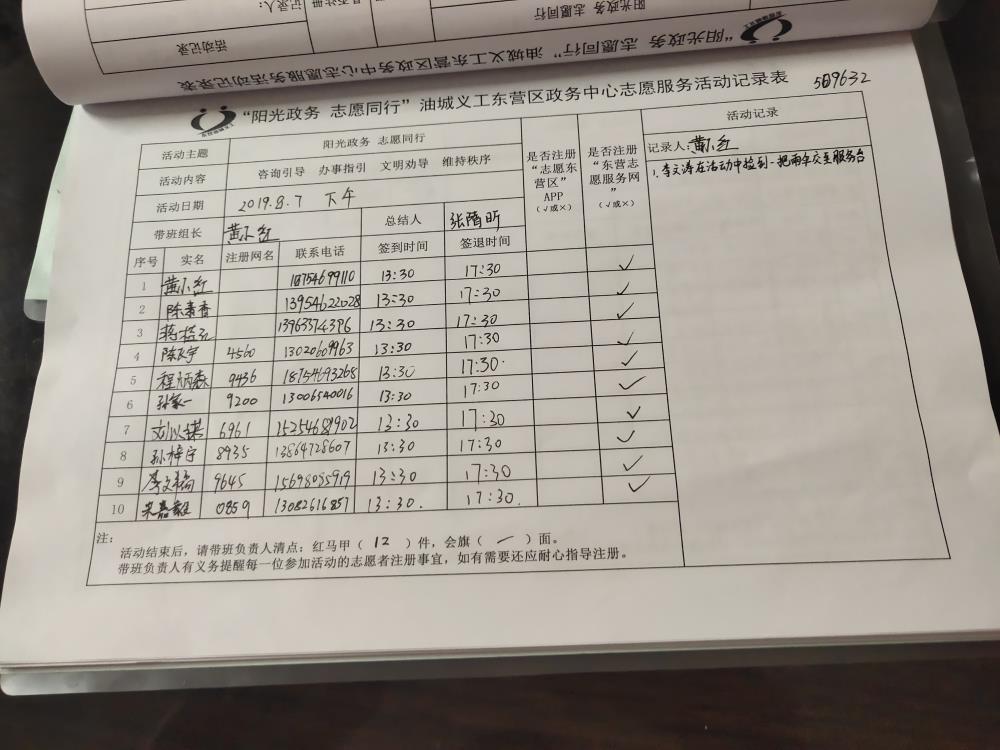 活动记录
记录人:
阳光政务 志愿同行
“阳光政务 志愿同行”油城义工东营区政务中心志愿服务活动记录表
“阳光政务 志愿同行”油城义工东营区政务中心志愿服务活动记录表 509632
活动主题 阳光政务 志愿同行 是否注册“志愿东营区”APP(√或×) 是否注册“东营志愿服务网”(√或×) 活动记录
活动内容 咨询引导 办事指引 文明劝导 维持秩序 记录人:黄小红
1.李文涛在活动中捡到一把雨伞交至服务台
活动日期 2019.8.7 下午
带班组长 黄小红 总结人 张隋昕
序号 实名 注册网名 联系电话 签到时间 签退时间
1 黄小红 18754699110 13:30 17:30 ✓
2 陈青香 13954622028 13:30 17:30 ✓
3 13963374396 13:30 17:30 ✓
4 陈飞宇 4560 13020609963 13:30 17:30 ✓
5 程炳森 9436 18754693268 13:30 17:30 ✓
6 孙家一 9200 13006540016 13:30 17:30 ✓
7 刘以琪 6961 15254681902 13:30 17:30 ✓
8 孙梓宁 8935 13864728607 13:30 17:30 ✓
9 李文涛 9645 15698035919 13:30 17:30 ✓
10 宋嘉毅 0859 13082616857 13:30. 17:30. ✓
注:
活动结束后,请带班负责人清点:红马甲( 12 )件,会旗( 一 )面。
带班负责人有义务提醒每一位参加活动的志愿者注册事宜,如有需要还应耐心指导注册。